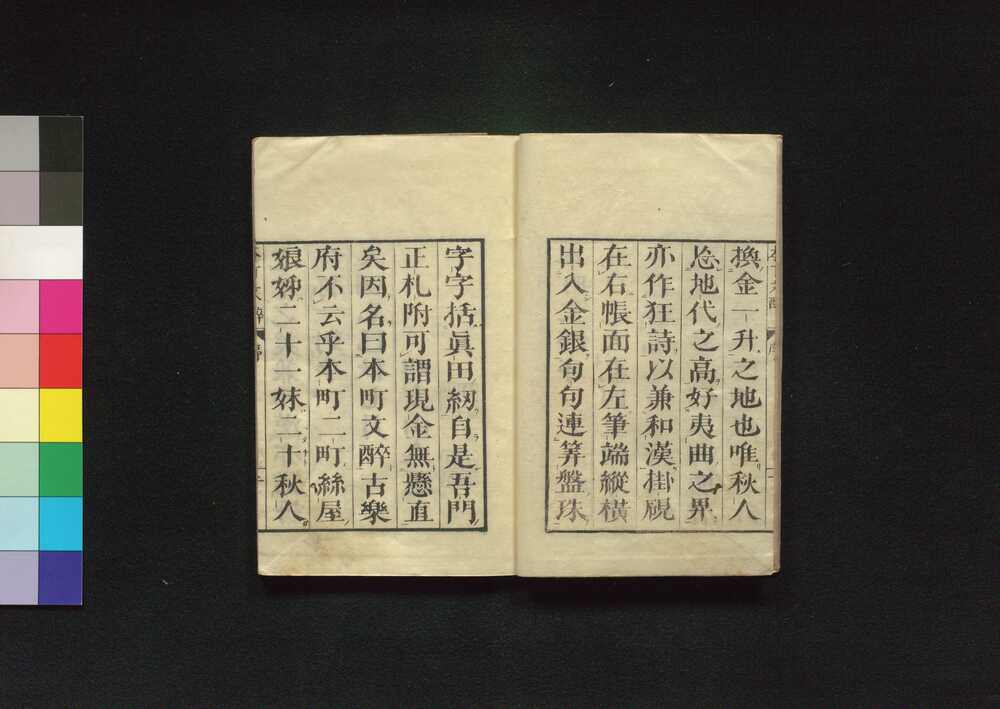 換金一升之地也唯秋人
忩地代之高好夷曲之界
亦作狂詩以兼和漢掛硯
在右帳面在左筆端縱橫
出入金銀句句連筭盤珠
字字括眞田紐自是吾門
正札附可謂現金無懸直
矣因名曰本町文醉古樂
府不云乎本町二町絲屋
娘姉二十一妹二十秋人